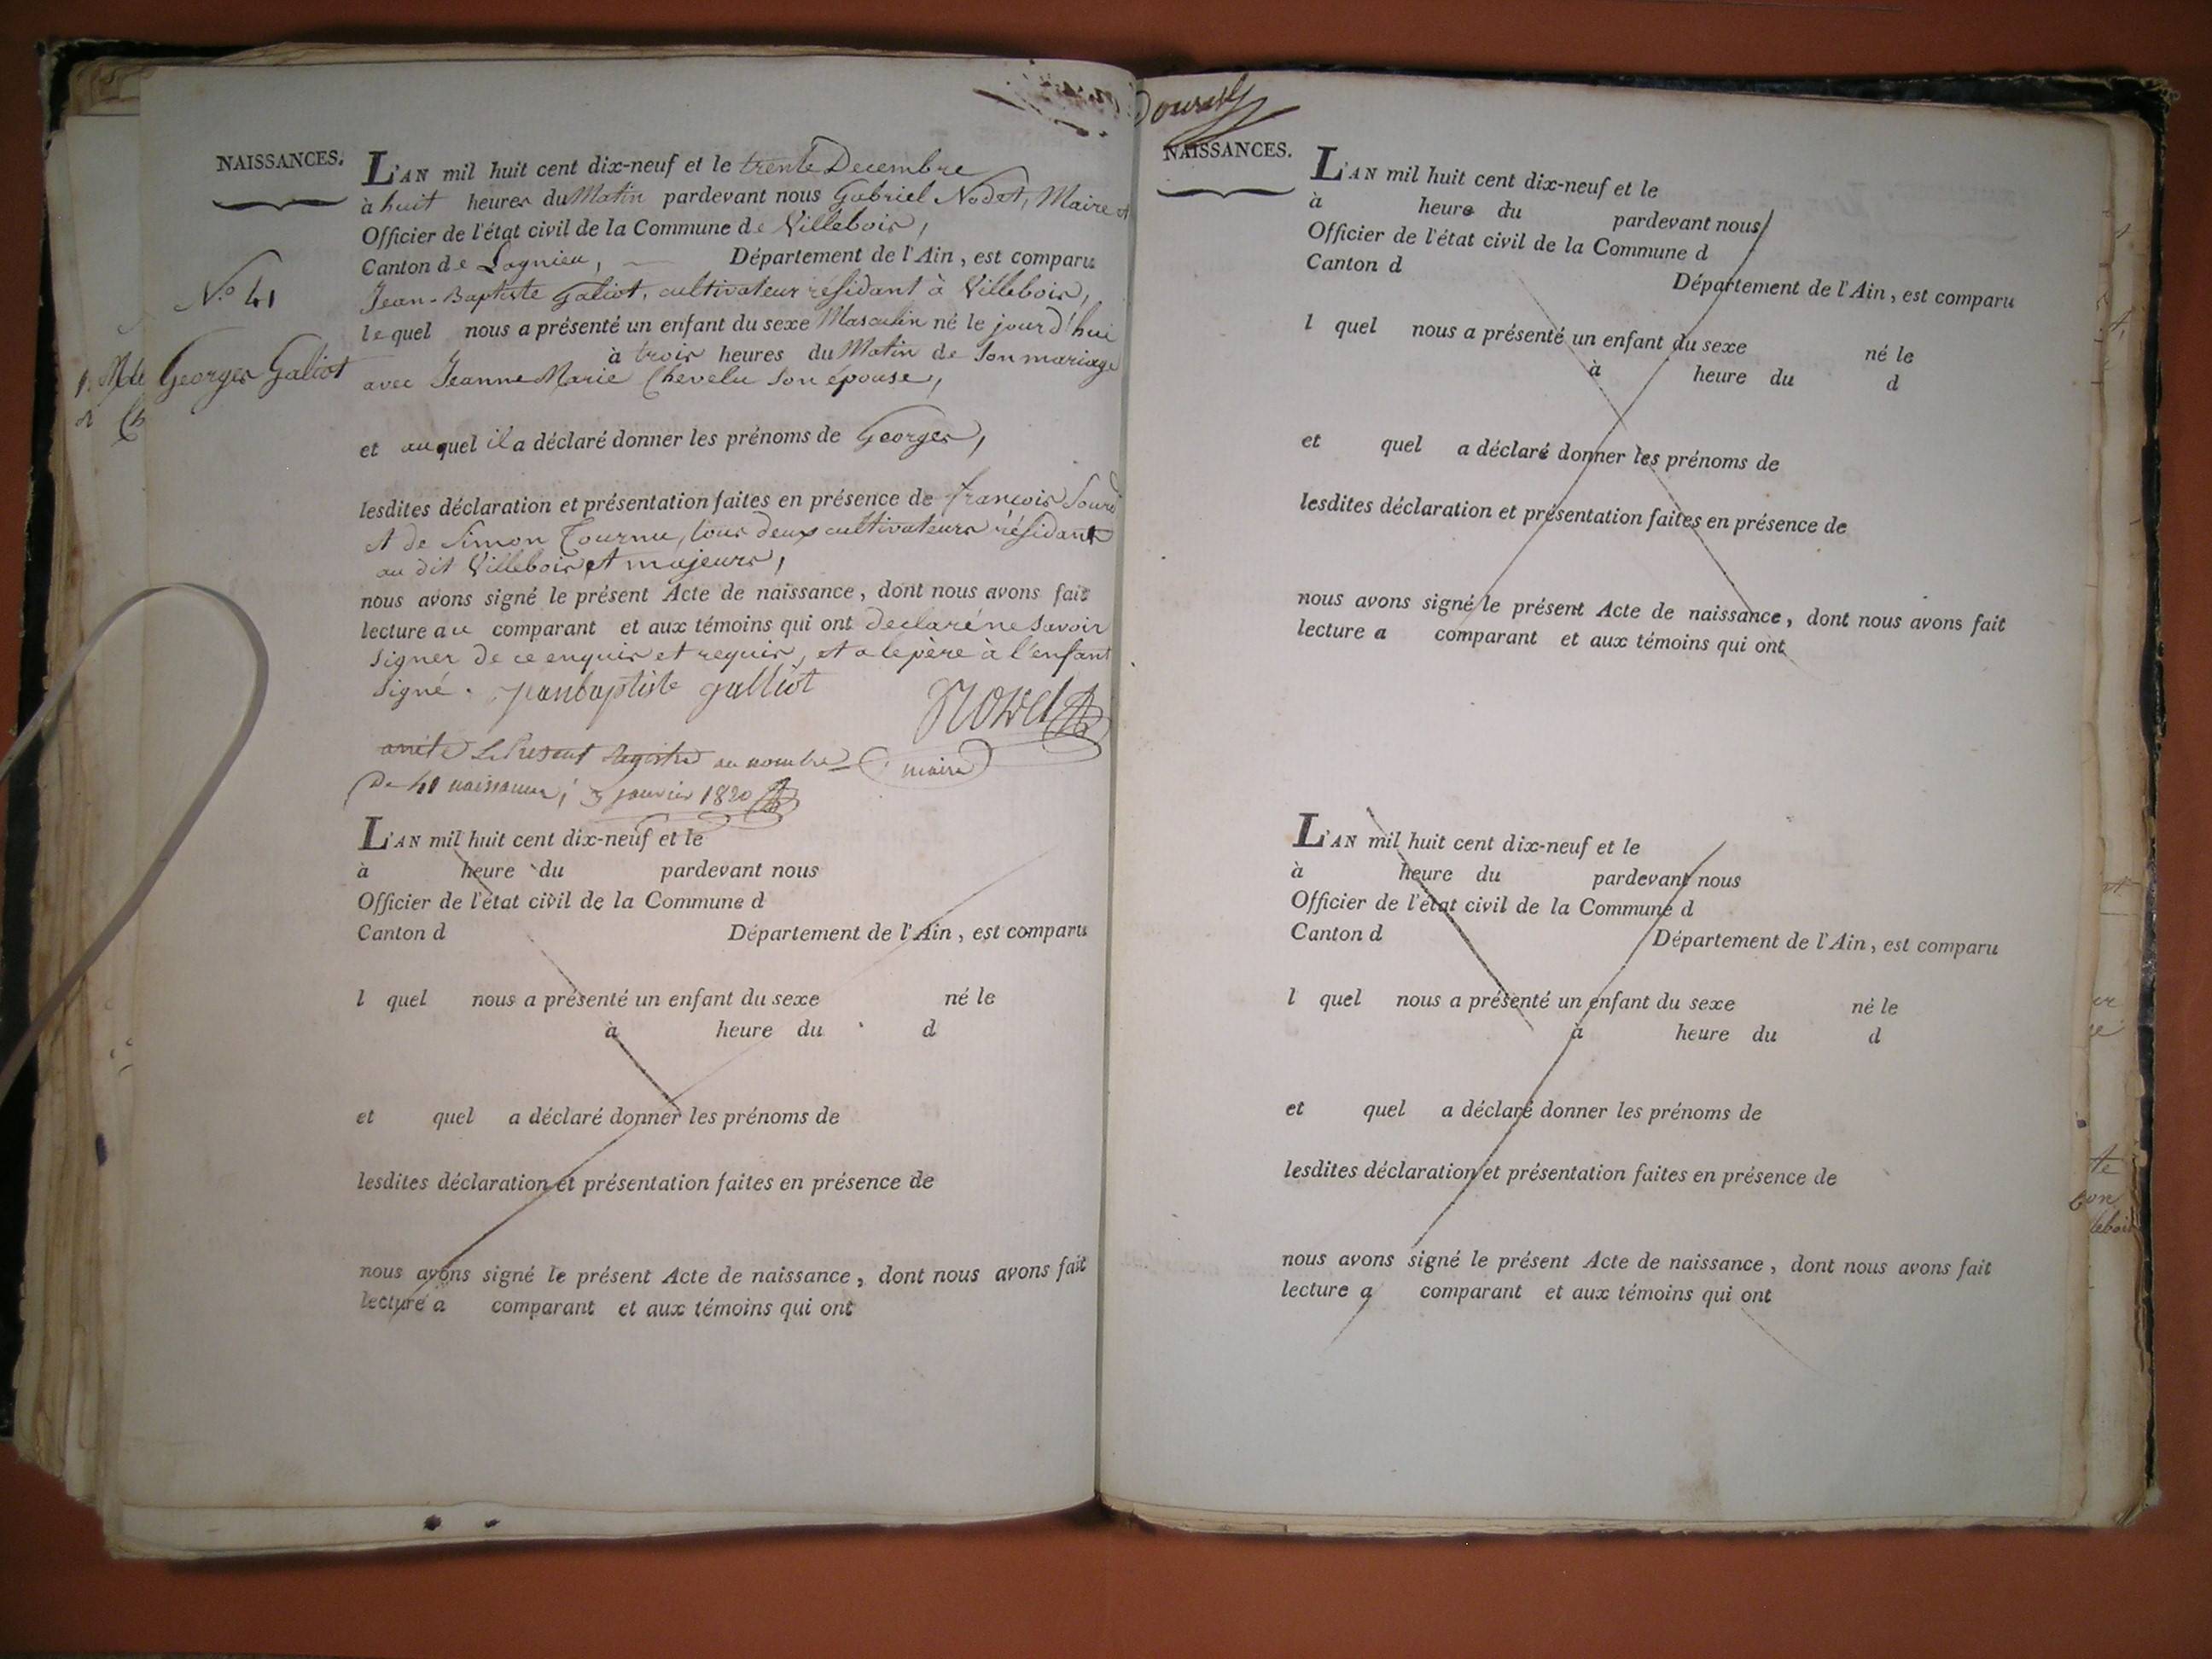 NAISSANCES.
L'AN mil huit cent dix-neuf et le trente Decembre
à huit heures du Matin pardevant nous Gabriel Nodet, Maire et
Officier de l'état civil de la Commune de Villebois,
Canton de Lagnieu, Département de l'Ain, est comparu
Jean-Baptiste Galiot, cultivateur résidant à Villebois,
lequel nous a présenté un enfant du sexe Masculin né le jourd'hui
à trois heures du Matin de son mariage
avec Jeanne Marie Chevelu son épouse,
et auquel il a déclaré donner les prénoms de Georges,
lesdites déclaration et présentation faites en présence de francois
et de Simon Tournu, tous deux cultivateurs résidant
au dit Villebois et majeurs,
nous avons signé le présent Acte de naissance, dont nous avons fait
lecture au comparant et aux témoins qui ont declaré ne savoir
signer de ce enquis et requis, et a le père à l'enfant
signé. jeanbaptiste galliot
arrêté Le Présent Registre au nombre maire
De 41 naissances, 3 janvier 1820
No 41
Georges Galiot
L'AN mil huit cent dix-neuf et le
à heure du pardevant nous
Officier de l'état civil de la Commune d
Canton d Département de l'Ain, est comparu
l quel nous a présenté un enfant du sexe né le
à heure du d
et quel a déclaré donner les prénoms de
lesdites déclaration et présentation faites en présence de
nous avons signé le présent Acte de naissance, dont nous avons fait
lecture a comparant et aux témoins qui ont
NAISSANCES.
L'AN mil huit cent dix-neuf et le
à heure du pardevant nous
Officier de l'état civil de la Commune d
Canton d
Département de l'Ain, est comparu
l quel nous a présenté un enfant du sexe né le
à heure du d
et quel a déclaré donner les prénoms de
lesdites déclaration et présentation faites en présence de
nous avons signé le présent Acte de naissance, dont nous avons fait
lecture a comparant et aux témoins qui ont
L'AN mil huit cent dix-neuf et le
à heure du pardevant nous
Officier de l'état civil de la Commune d
Canton d Département de l'Ain, est comparu
l quel nous a présenté un enfant du sexe né le
à heure du d
et quel a déclaré donner les prénoms de
lesdites déclaration et présentation faites en présence de
nous avons signé le présent Acte de naissance, dont nous avons fait
lecture a comparant et aux témoins qui ont